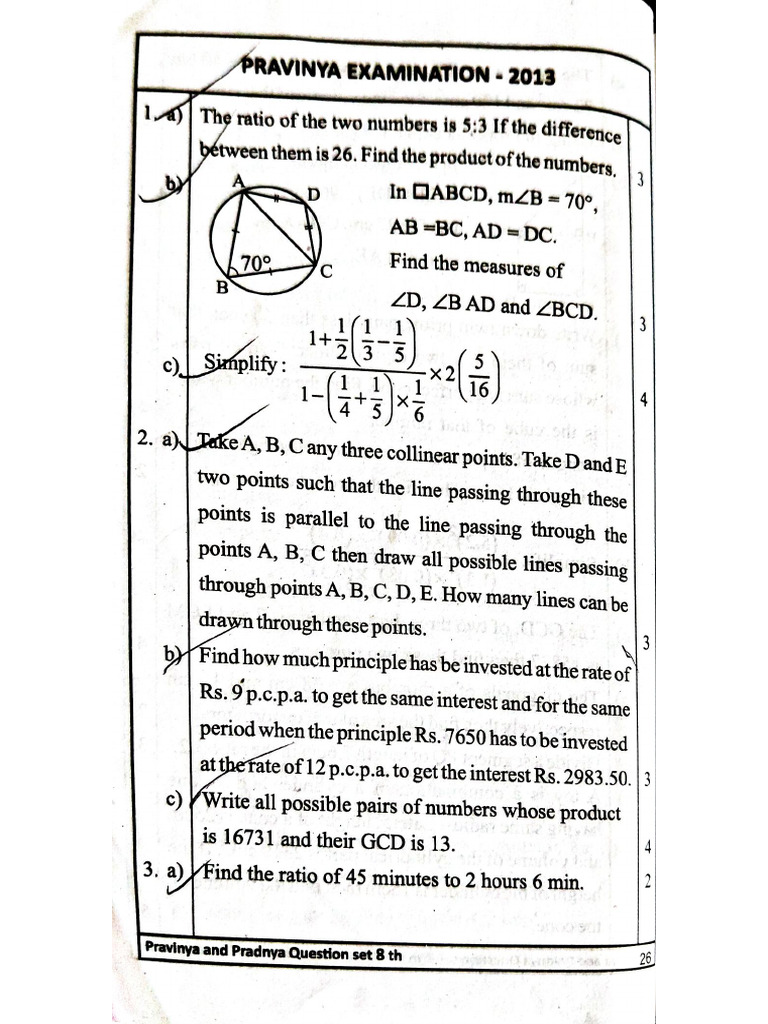 PRAVINYA EXAMINATION - 2013
1. a) The ratio of the two numbers is 5:3 If the difference
between them is 26. Find the product of the numbers. 3
b) A D In □ABCD, m∠B = 70°,
AB =BC, AD = DC.
70° C Find the measures of
B ∠D, ∠B AD and ∠BCD. 3
c) Simplify : \frac{1+\frac{1}{2}\left(\frac{1}{3}-\frac{1}{5}\right)}{1-\left(\frac{1}{4}+\frac{1}{5}\right)×\frac{1}{6}}×2\left(\frac{5}{16}\right) 4
2. a) Take A, B, C any three collinear points. Take D and E
two points such that the line passing through these
points is parallel to the line passing through the
points A, B, C then draw all possible lines passing
through points A, B, C, D, E. How many lines can be
drawn through these points. 3
b) Find how much principle has be invested at the rate of
Rs. 9 p.c.p.a. to get the same interest and for the same
period when the principle Rs. 7650 has to be invested
at the rate of 12 p.c.p.a. to get the interest Rs. 2983.50. 3
c) Write all possible pairs of numbers whose product
is 16731 and their GCD is 13. 4
3. a) Find the ratio of 45 minutes to 2 hours 6 min. 2
Pravinya and Pradnya Question set 8 th 26